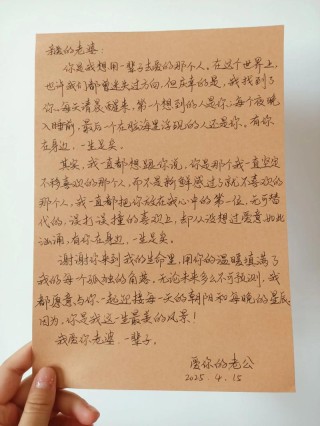 亲爱的老婆:
你是我想用一辈子去爱的那个人。在这个世界上,
也许我们都曾迷失过方向,但庆幸的是,我找到了
你。每天清晨醒来,第一个想到的人是你。每个夜晚
入睡前,最后一个在脑海里浮现的人还是你。有你
在身边,一生足矣。
其实,我一直都想跟你说,你是那个我一直坚定
不移喜欢的那个人,而不是新鲜感过了就不喜欢的
那个人,我一直都把你放在我心中的第一位,无可替
代的,误打误撞的喜欢上,却从没想过爱意如此
汹涌,有你在身边,一生足矣。
谢谢你来到我的生命里,用你的温暖填满了
我的每个孤独的角落,无论未来多么不可预测,我
都愿意与你一起迎接每一天的朝阳和每晚的星辰
因为,你是我这一生最美的风景!
我爱你老婆,一辈子。
爱你的老公
2025.4.15